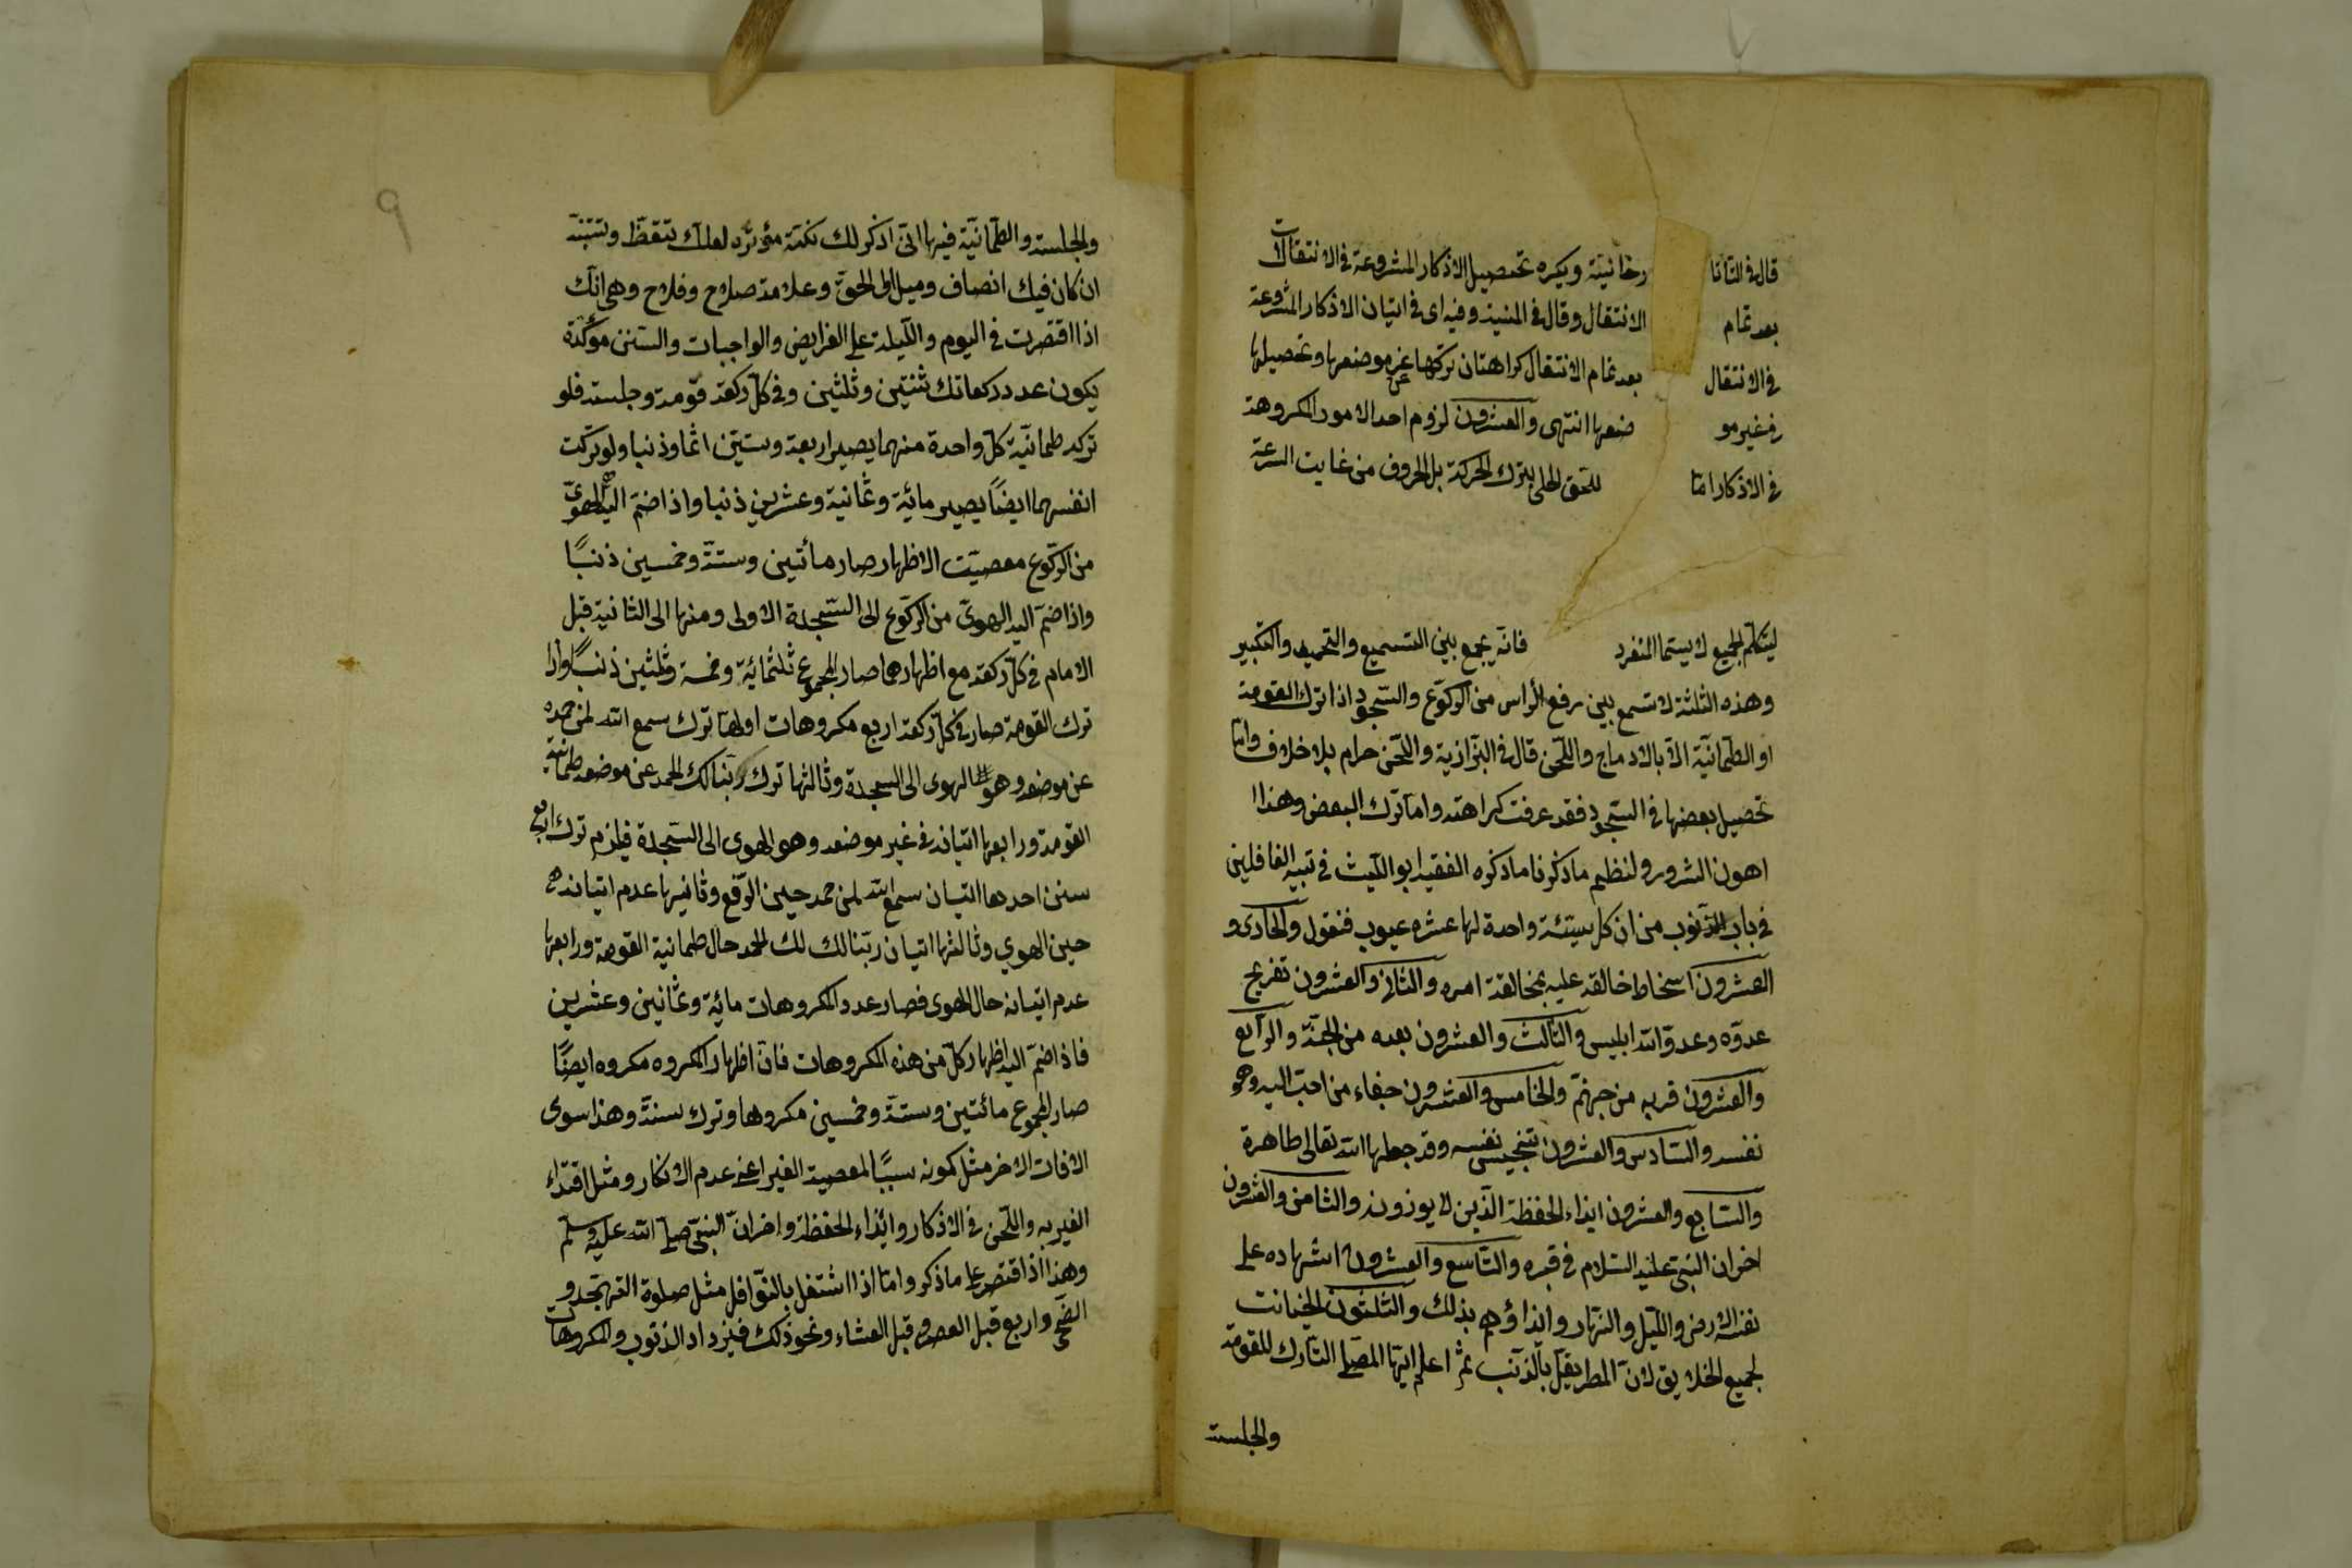 قال فى التاتا رخانية ويكره تحصيل الاذكار المشروعة فى الانتقالات
بعد تمام الانتقال وقال فى المنية وفيه اى فى اتيان الاذكار المشروعة
فى الانتقال بعد تمام الانتقال كراهتان تركها عن موضعها وتحصيلها
فى غير مو ضعها انتهى والعشرون لزوم احد الامور المكروهة
فى الاذكار امّا للحق الجلى بترك الحركة بل الحروف من غايت السرعة
ليتكلم الجميع لا يستما المنفرد فانّه يجمع بين التسميع والتحميد والتكبير
وهذه الثلثة لا تسمع بين رفع الرأس من الركوع والسّجود اذا ترك القومة
او الطمانيّة الّا بالادماج واللّحن قال فى البزازية واللّحن حرام بلا خلاف وامّا
تحصيل بعضها فى السّجود فقد عرفت كراهته وامّا ترك البعض وهذا
اهون الشرور ولنظيم ماذكرنا ماذكره الفقيه ابو اللّيث فى تنبيه الغافلين
فى باب الذّنوب من ان كل سيّئة واحدة لها عشره عيوب فنقول والحادى و
العشرون اسخاط خالقه عليه بمخالفة امره والثانى والعشرون تفريح
عدوّه وعدوّ الله ابليس والثالث والعشرون بعده من الجنّة والرّابع
والعشرون قربه من جهنّم والخامس والعشرون جفاء من احبّ اليه وهو
نفسه والسّادس والعشرون تنجيس نفسه وقد جعلها الله تعالى طاهرة
والسّابع والعشرون ايذاء الحفظة الّذين لا يوذونه والثامن والعشرون
احزان النبىّ عليه السّلام فى قبره والتّاسع والعشرون اشهاده على
نفسه الارض واللّيل والنّهار وايذاؤهم بذلك والثّلثون الخيانت
لجميع الخلايق لانّ المطر يقلّ بالذّنب ثمّ اعلم ايّها المصلى التّارك للقومة
والجلسة
٩
والجلسة والطمانيّة فيها انّى اذكر لك نكتة مؤثرة لعلّك تتقظّ وتتنبّه
ان كان فيك انصاف وميل الى الحقّ وعلامة صلاح وفلاح وهى انّك
اذا اقتصرت فى اليوم واللّيلة على الفرايض والواجبات والسّنن مؤكّدة
يكون عدد ركعاتك ثنتين وثلثين وفى كلّ ركعة قومة وجلسة فلو
تركه طمانيّة كلّ واحدة منهما يصير اربعة وستّين اثما وذنبا ولو تركت
انفسهما ايضًا يصير مائة وثمانية وعشرين ذنبا واذا ضمّ اليه الهوىّ
من الرّكوع معصيّت الاظهار صار مأتين وستّة وخمسين ذنبًا
واذا ضمّ اليه الهوىّ من الرّكوع الى السّجدة الاولى ومنها الى الثانية قبل
الامام فى كلّ ركعة مع اظهارهما صار المجموع ثلثمائة وخمسة وثلثين ذنبًا واذا
ترك القومة صار فى كلّ ركعة اربع مكروهات اولها ترك سمع الله لمن حمده
عن موضعه وهو الهوى الى السجدة وثالثها ترك ربّنا لك الحمد عن موضعه طمانيّة
القومة ورابعها اتيانه فى غير موضعه وهو الهوى الى السّجدة فيلزم ترك اربع
سنن احدها اتيان سمع الله لمن حمد حين الرّفع وثانيها عدم اتيانه
حين الهوي وثالثها اتيان ربّنا لك لك الحمد حال طمانية القومة ورابعها
عدم اتيانه حال الهوى فصار عدد المكروهات مائة وثمانين وعشرين
فاذا ضمّ اليه اظهار كلّ من هذه المكروهات فانّ اظهار المكروه مكروه ايضًا
صار المجموع مائتين وستّة وخمسين مكروها وترك سنّة وهذا سوى
الافات الاخر مثل كونه سببًا لمعصية الغير اعنى عدم الانكار ومثل اقتداء
الغير به واللّحن فى الاذكار وايذاء الحفظة واحزان النبىّ صلى الله عليه وسلّم
وهذا اذا اقتصر على ماذكر وامّا اذا اشتغل بالنّوافل مثل صلوة التهجّد و
الضّحى واربع قبل العصر وقبل العشاء ونحو ذلك فيزداد الذنوب والمكروهات